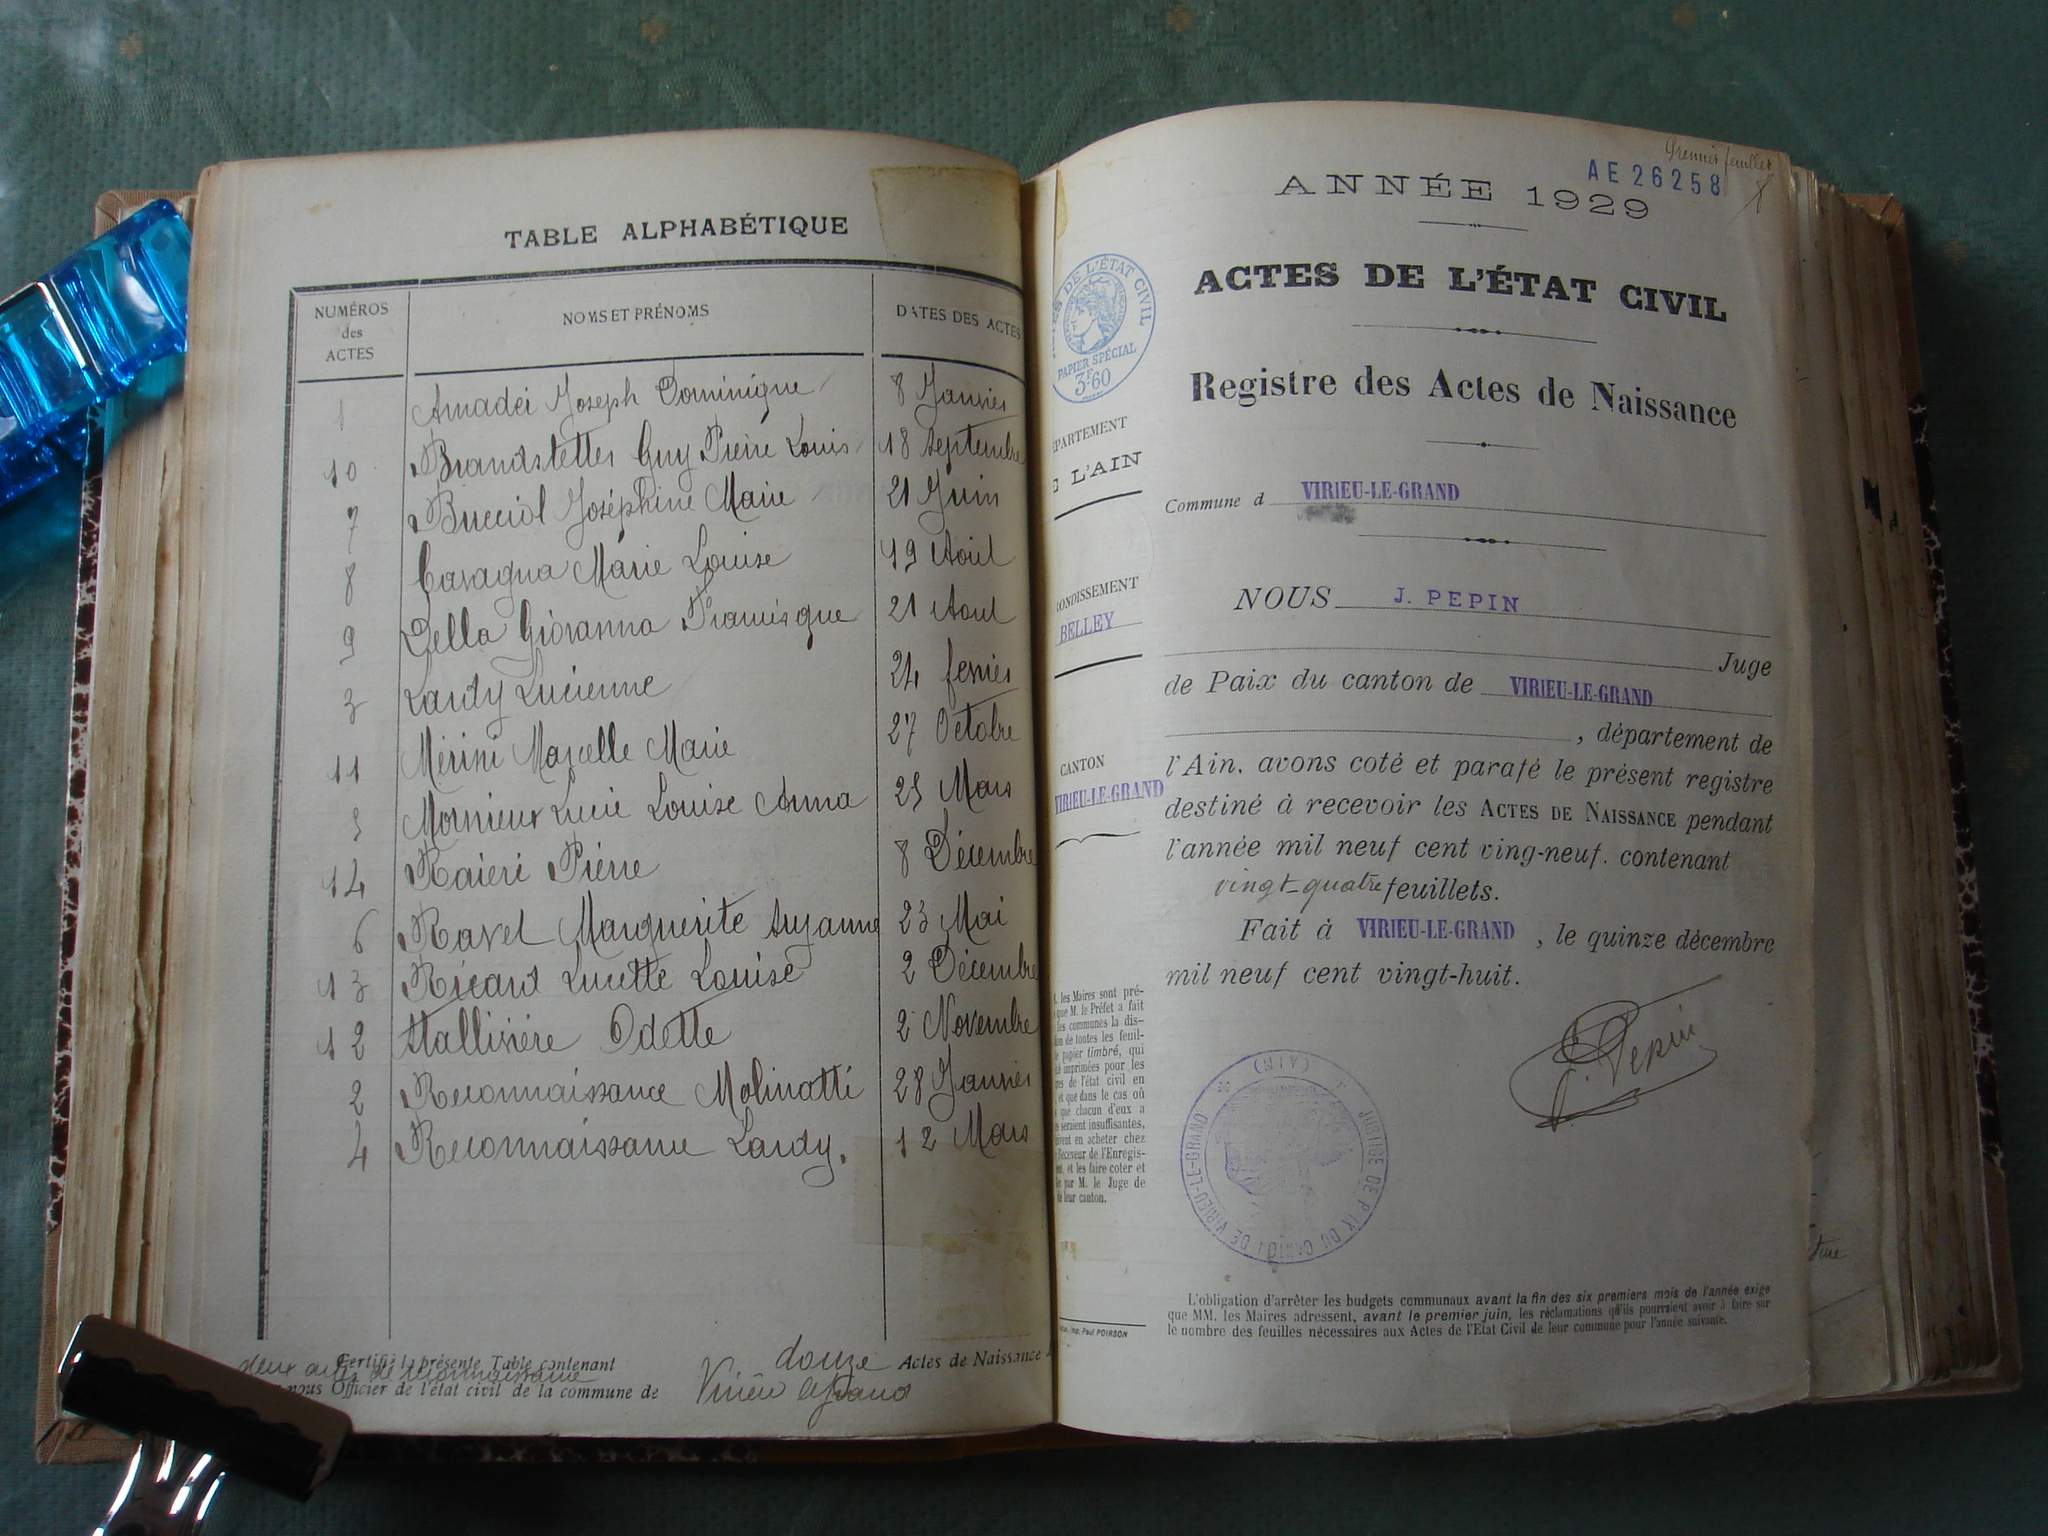 TABLE ALPHABÉTIQUE
NUMÉROS des ACTES NOMS ET PRÉNOMS DATES DES ACTES
1 Amadéi Joseph Dominique 8 Janvier
10 Brandstetter Guy Pierre Louis 18 Septembre
7 Bucciol Joséphine Marie 21 Juin
8 Cavagna Marie Louise 19 Août
9 Della Giovanna Françisque 21 Août
3 Lardy Lucienne 24 fevrier
11 Mérini Marcelle Marie 27 Octobre
5 Mornieux Lucie Louise Anna 25 Mars
14 Raiéri Piérre 8 Décembre
6 Ravet Marguerite Suzanne 23 Mai
13 Ricard Lucette Louise 2 Décembre
12 Stallivière Odette 2 Novembre
2 Reconnaissance Molinatti 28 Janvier
4 Reconnaissance Lardy. 12 Mars
Certifié la présente Table contenant douze Actes de Naissance
deux actes de reconnaissance
nous Officier de l'état civil de la commune de Virieu le Grand
Premier feuillet
AE 26258
ANNÉE 1929
ACTES DE L'ÉTAT CIVIL
Registre des Actes de Naissance
Commune d VIRIEU-LE-GRAND
NOUS J. PEPIN
Juge
de Paix du canton de VIRIEU-LE-GRAND
, département de
l'Ain, avons coté et parafé le présent registre
destiné à recevoir les ACTES DE NAISSANCE pendant
l'année mil neuf cent ving-neuf. contenant
vingt-quatre feuillets.
Fait à VIRIEU-LE-GRAND, le quinze décembre
mil neuf cent vingt-huit.
J. Pepin
DE L'ÉTAT CIVIL
PAPIER SPÉCIAL
3F.60
PARTEMENT
L'AIN
ONDISSEMENT
BELLEY
CANTON
VIRIEU-LE-GRAND
les Maires sont pré-
que M. le Préfet a fait
les communes la dis-
on de toutes les feuil-
papier timbré, qui
imprimées pour les
s de l'état civil en
et que dans le cas où
que chacun d'eux a
seraient insuffisantes,
vent en acheter chez
Receveur de l'Enregis-
et les faire coter et
par M. le Juge de
leur canton.
Imp. Paul POIRSON
JUSTICE DE PAIX DU CANTON DE VIRIEU-LE-GRAND (AIN)
L'obligation d'arrêter les budgets communaux avant la fin des six premiers mois de l'année exige
que MM. les Maires adressent, avant le premier juin, les réclamations qu'ils pourraient avoir à faire sur
le nombre des feuilles nécessaires aux Actes de l'Etat Civil de leur commune pour l'année suivante.